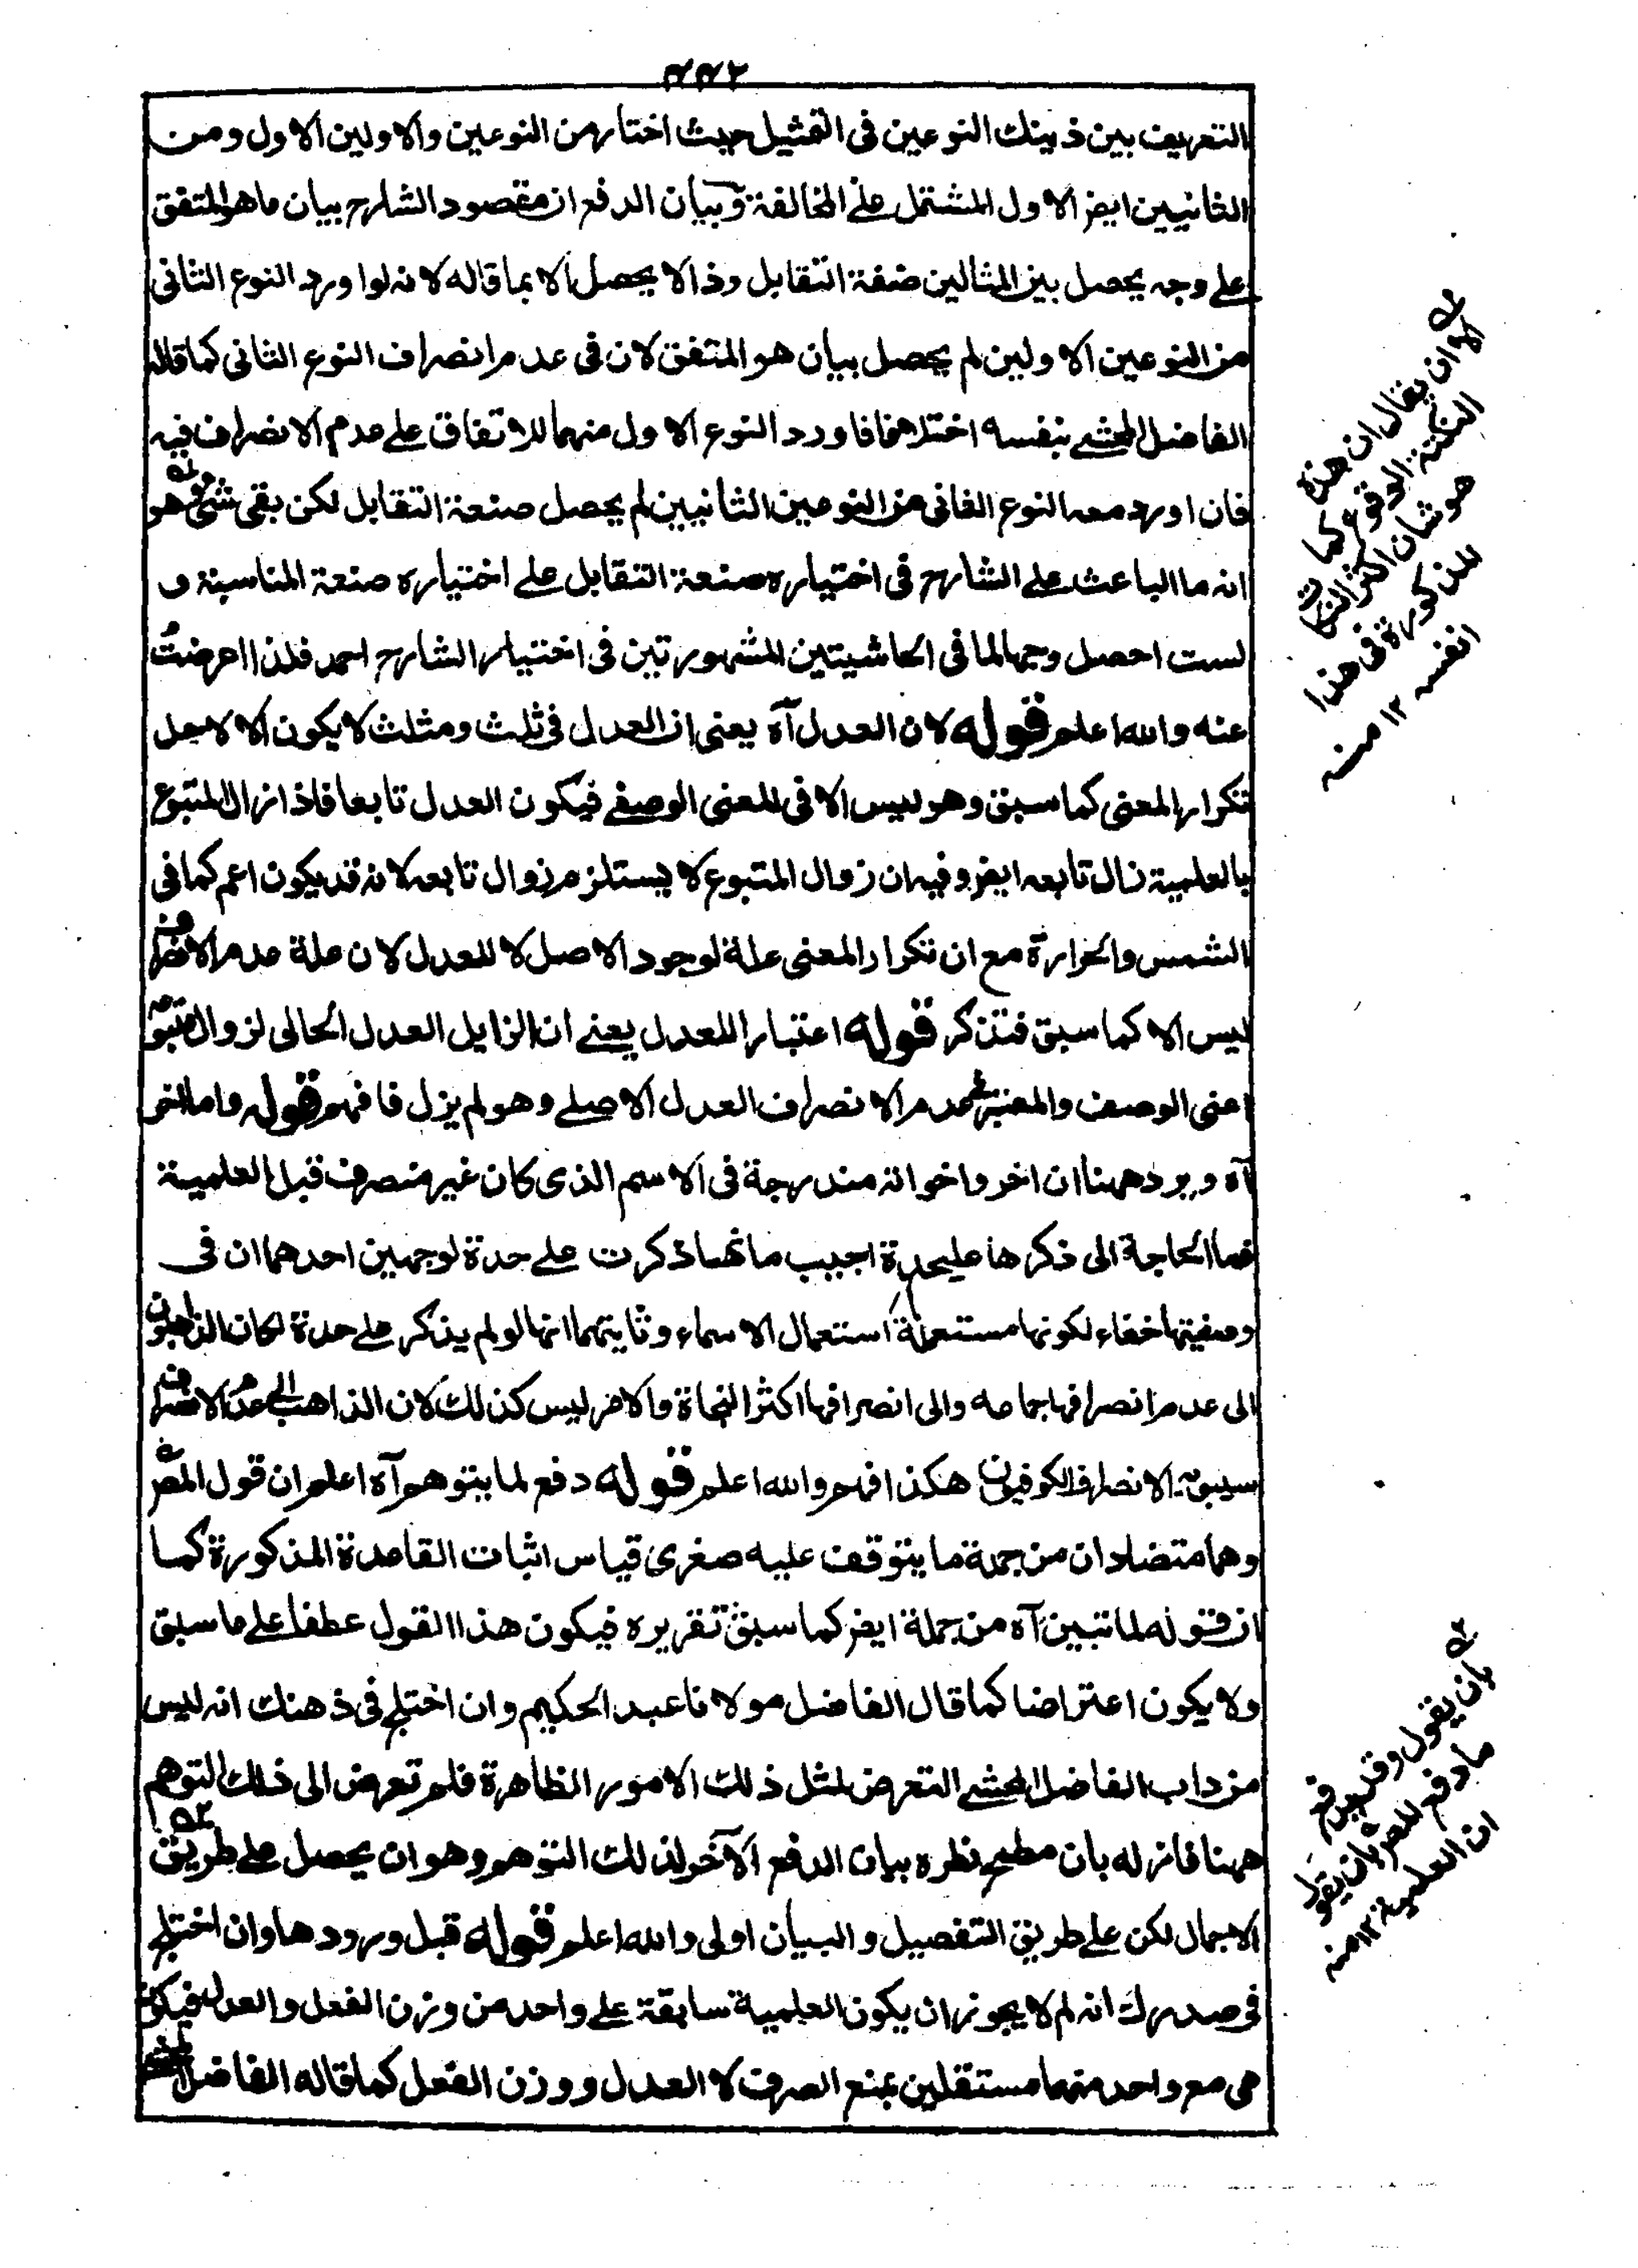 ٤٤٢
التعريف بين ذينك النوعين فى التمثيل حيث اختار من النوعين والاولين الاول ومن
الثانيين ايض الاول المشتمل على المخالفة وبيان الدفع ان مقصود الشارح بيان ما هو المتفق
على وجه يحصل بين المثالين صنفة التقابل وذا لا يحصل الا بما قاله لانه لو اورد النوع الثانى
من النوعين الاولين لم يحصل بيان هو المتفق لان فى عدم انصراف النوع الثانى كما قاله
الفاضل المحشے بنفسه اختلافا فاورد النوع الاول منهما للاتفاق على عدم الانصراف فيه
فان اورد معه النوع الثانى من النوعين الثانيين لم يحصل صنعة التقابل لكن بقى شئ وهو
انه ما الباعث على الشارح فى اختياره صنعة التقابل على اختياره صنعة المناسبة و
لست احصل وجها لما فى الحاشيتين المشهورتين فى اختيار الشارح اسمد فلذا اعرضتُ
عنه والله اعلم قوله لان العدل آه يعنى ان العدل فى ثلث ومثلث لا يكون الا لاجل
تكرار المعنى كما سبق وهو ليس الا فى المعنى الوصفے فيكون العدل تابعا فاذا زال المتبوع
بالعلمية زال تابعه ايض وفيه ان زوال المتبوع لا يستلزم زوال تابعه لانه قد يكون اعم كما فى
الشمس والحرارة مع ان تكرار المعنى علة لوجود الاصل لا للعدل لان علة عدم الانصراف
ليس الا كما سبق فتذكر قوله اعتبارا للعدل يعنے ان الزايل العدل الحالى لزوال متبوعه
اعنى الوصف والمعتبر لعدم الانصراف العدل الاصلے وهو لم يزل فافهم قوله واما اخر
آه ويرد ههنا ان اخر واخواته مندرجة فى الاسم الذى كان غير منصرف قبل العلمية
فما الحاجة الى ذكرها عليحدة اجيب بانها ذكرت على حدة لوجهين احدهما ان فى
وصفيتها خفاء لكونها مستعملة استعمال الاسماء وثانيتهما انها لو لم يذكر على حدة لكان الذاهبون
الى عدم انصرافها جماعه والى انصرافها اكثر النحاة والامر ليس كذلك لان الذاهب الى عدم الانصراف
سيبويه الانصراف الكوفيون هكذا افهم والله اعلم قوله دفع لما يتوهم آه اعلم ان قول المصؒ
وهما متضادان من جملة ما يتوقف عليه صغرى قياس اثبات القاعدة المذكورة كما
ان قوله لما تبين آه من جملة ايض كما سبق تقريره فيكون هذا القول عطفا على ما سبق
ولا يكون اعتراضا كما قال الفاضل مولانا عبد الحكيم وان اختلج فى ذهنك انه ليس
من داب الفاضل المحشے التعرض لمثل ذلك الامور الظاهرة فلم تعرض الى ذلك التوهم
ههنا فانزله بان مطمح نظره بيان الدفع الآخر لذلك التوهم وهو ان يحصل على طريق
الاجمال لكن على طريق التفصيل والبيان اولى والله اعلم قوله قبل ورودها وان اختلج
فى صدرك انه لم لا يجوز ان يكون العلمية سابقة على واحد من وزن الفعل والعدل فيكون
هى مع واحد منهما مستقلين بمنع الصرف لا العدل ووزن الفعل كما قاله الفاضل المحشے
الا ان يقال ان هذه
النكتة الوقوع كما
هو شان اكثر النكات
المذكورة فى هذا
انفسه ١٢ منه
بان يقول وقد يعرف
ما دفع المصؒ بان يقول
ان العلمية ١٢ منه